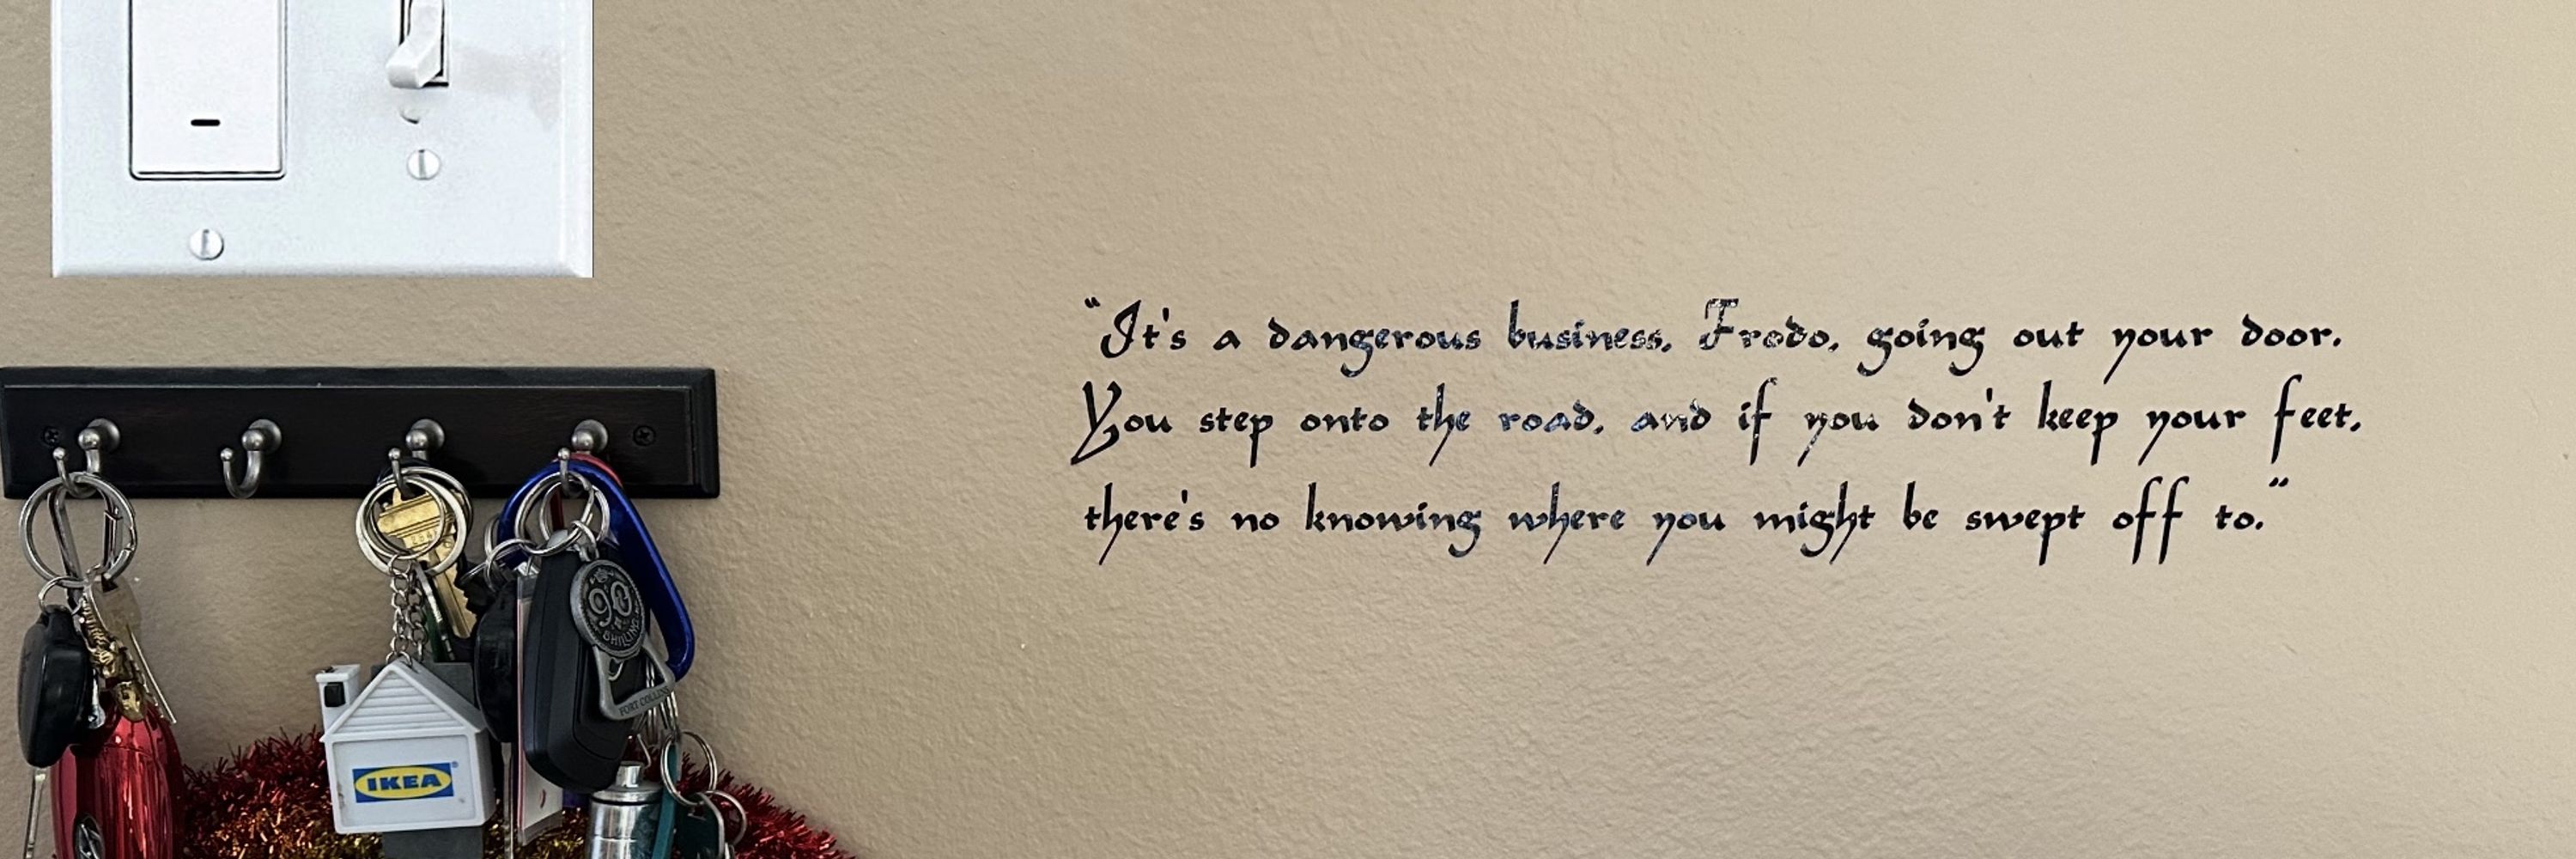 “It's a dangerous business, Frodo, going out your door.
You step onto the road, and if you don't keep your feet,
there's no knowing where you might be swept off to.”
90
SHILLING
FORT COLLINS
IKEA